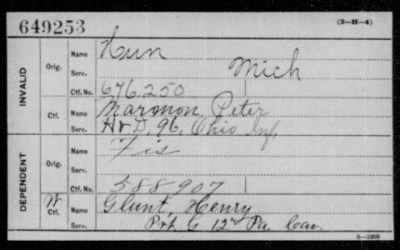 649253 (3-H-4)
INVALID Orig. Name Hun
Serv. Mich
Ctf. No. 676.250
Ctf. Name Peter
Serv. D, 96, Ohio Inf.
DEPENDENT Orig. Name Fis
Serv.
Ctf. No. 588907
W Ctf. Name Glunt, Henry
Serv. Pvt. G 12" Pa. Cav.